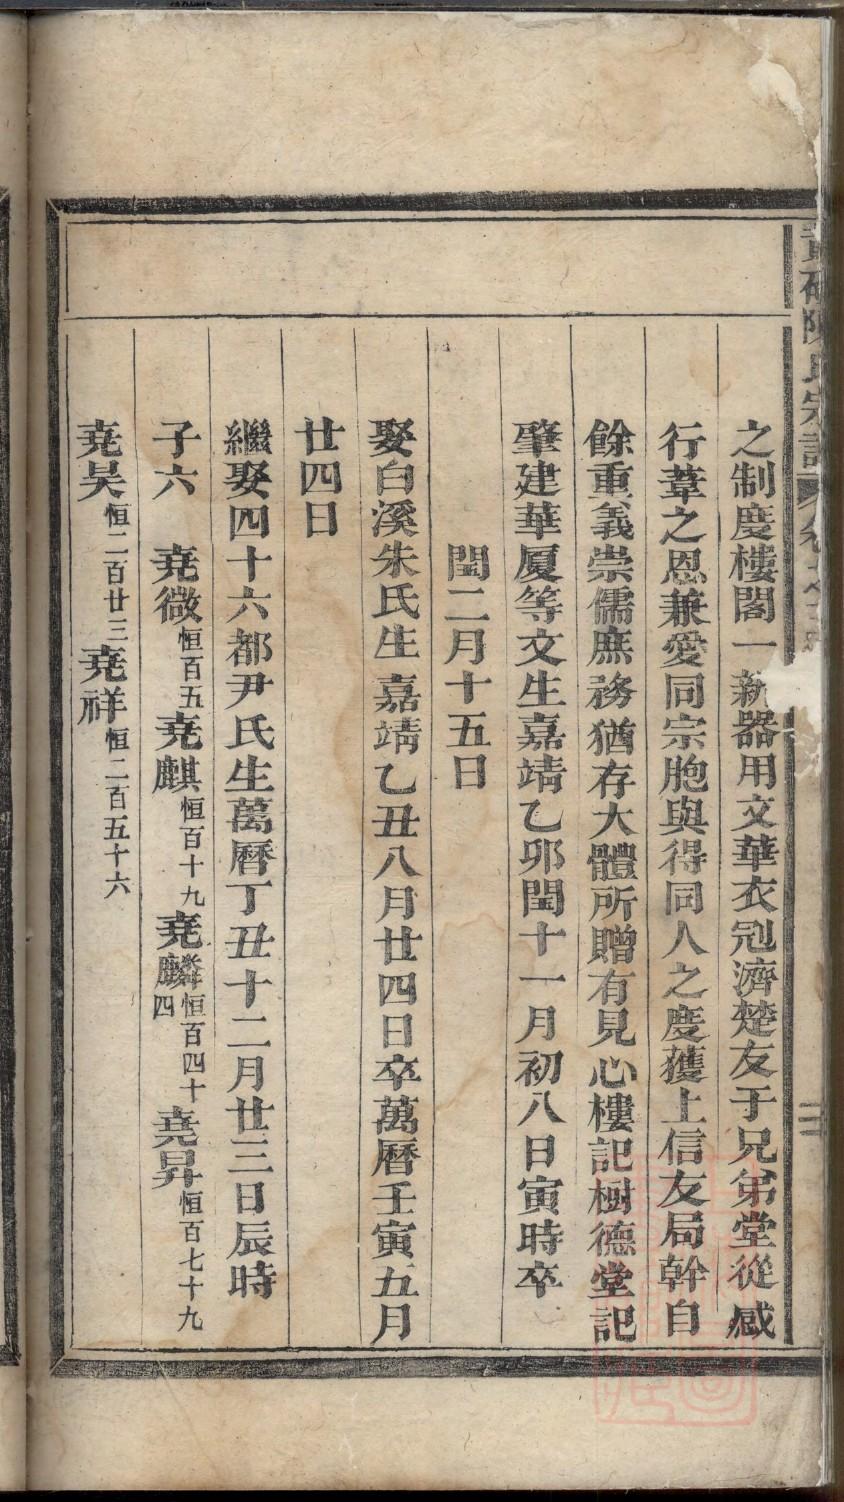 陳氏宗譜
之制度樓閣一新器用文華衣冠濟楚友于兄弟堂從感
行葦之恩兼愛同宗胞與得同人之度獲上信友局幹自
餘重義崇儒庶務猶存大體所贈有見心樓記樹德堂記
肇建華厦等文生嘉靖乙卯閏十一月初八日寅時卒
閏二月十五日
娶白溪朱氏生嘉靖乙丑八月廿四日卒萬曆壬寅五月
廿四日
繼娶四十六都尹氏生萬曆丁丑十二月廿三日辰時
子六 堯微恒百五堯麒恒百十九堯麟恒百四十四堯昇恒百七十九
堯吴恒二百廿三堯祥恒二百五十六